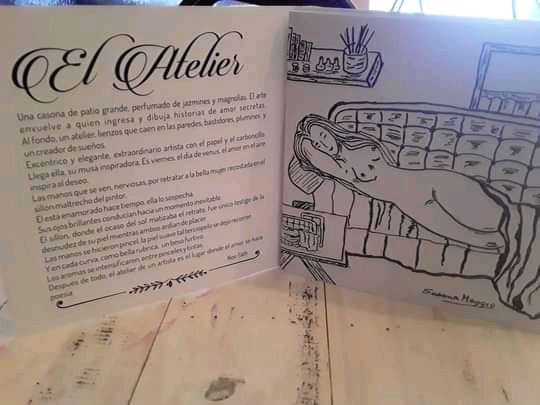 El Atelier
Una casona de patio grande, perfumado de jazmines y magnolias. El arte
envuelve a quien ingresa y dibuja historias de amor secretas.
Al fondo, un atelier, lienzos que caen en las paredes, bastidores, plumines y
un creador de sueños.
Excéntrico y elegante, extraordinario artista con el papel y el carboncillo.
Llega ella, su musa inspiradora. Es viernes, el día de venus, el amor en el aire
inspira al deseo.
Las manos que se ven, nerviosas, por retratar a la bella mujer recostada en el
sillón maltrecho del pintor.
El está enamorado hace tiempo, ella lo sospecha.
Sus ojos brillantes conducían hacia un momento inevitable.
El sillón, donde el ocaso del sol matizaba el retrato, fue único testigo de la
desnudez de su piel mientras ambos ardían de placer.
Las manos se hicieron pincel, la piel suave talterciopelo se dejó recorrer.
Y en cada curva, como bella rúbrica, un beso furtivo.
Los aromas se intensificaron, entre pinceles y tintas.
Después de todo, el atelier de un artista es el lugar donde el amor se hace
poesía.
Susana Maggio